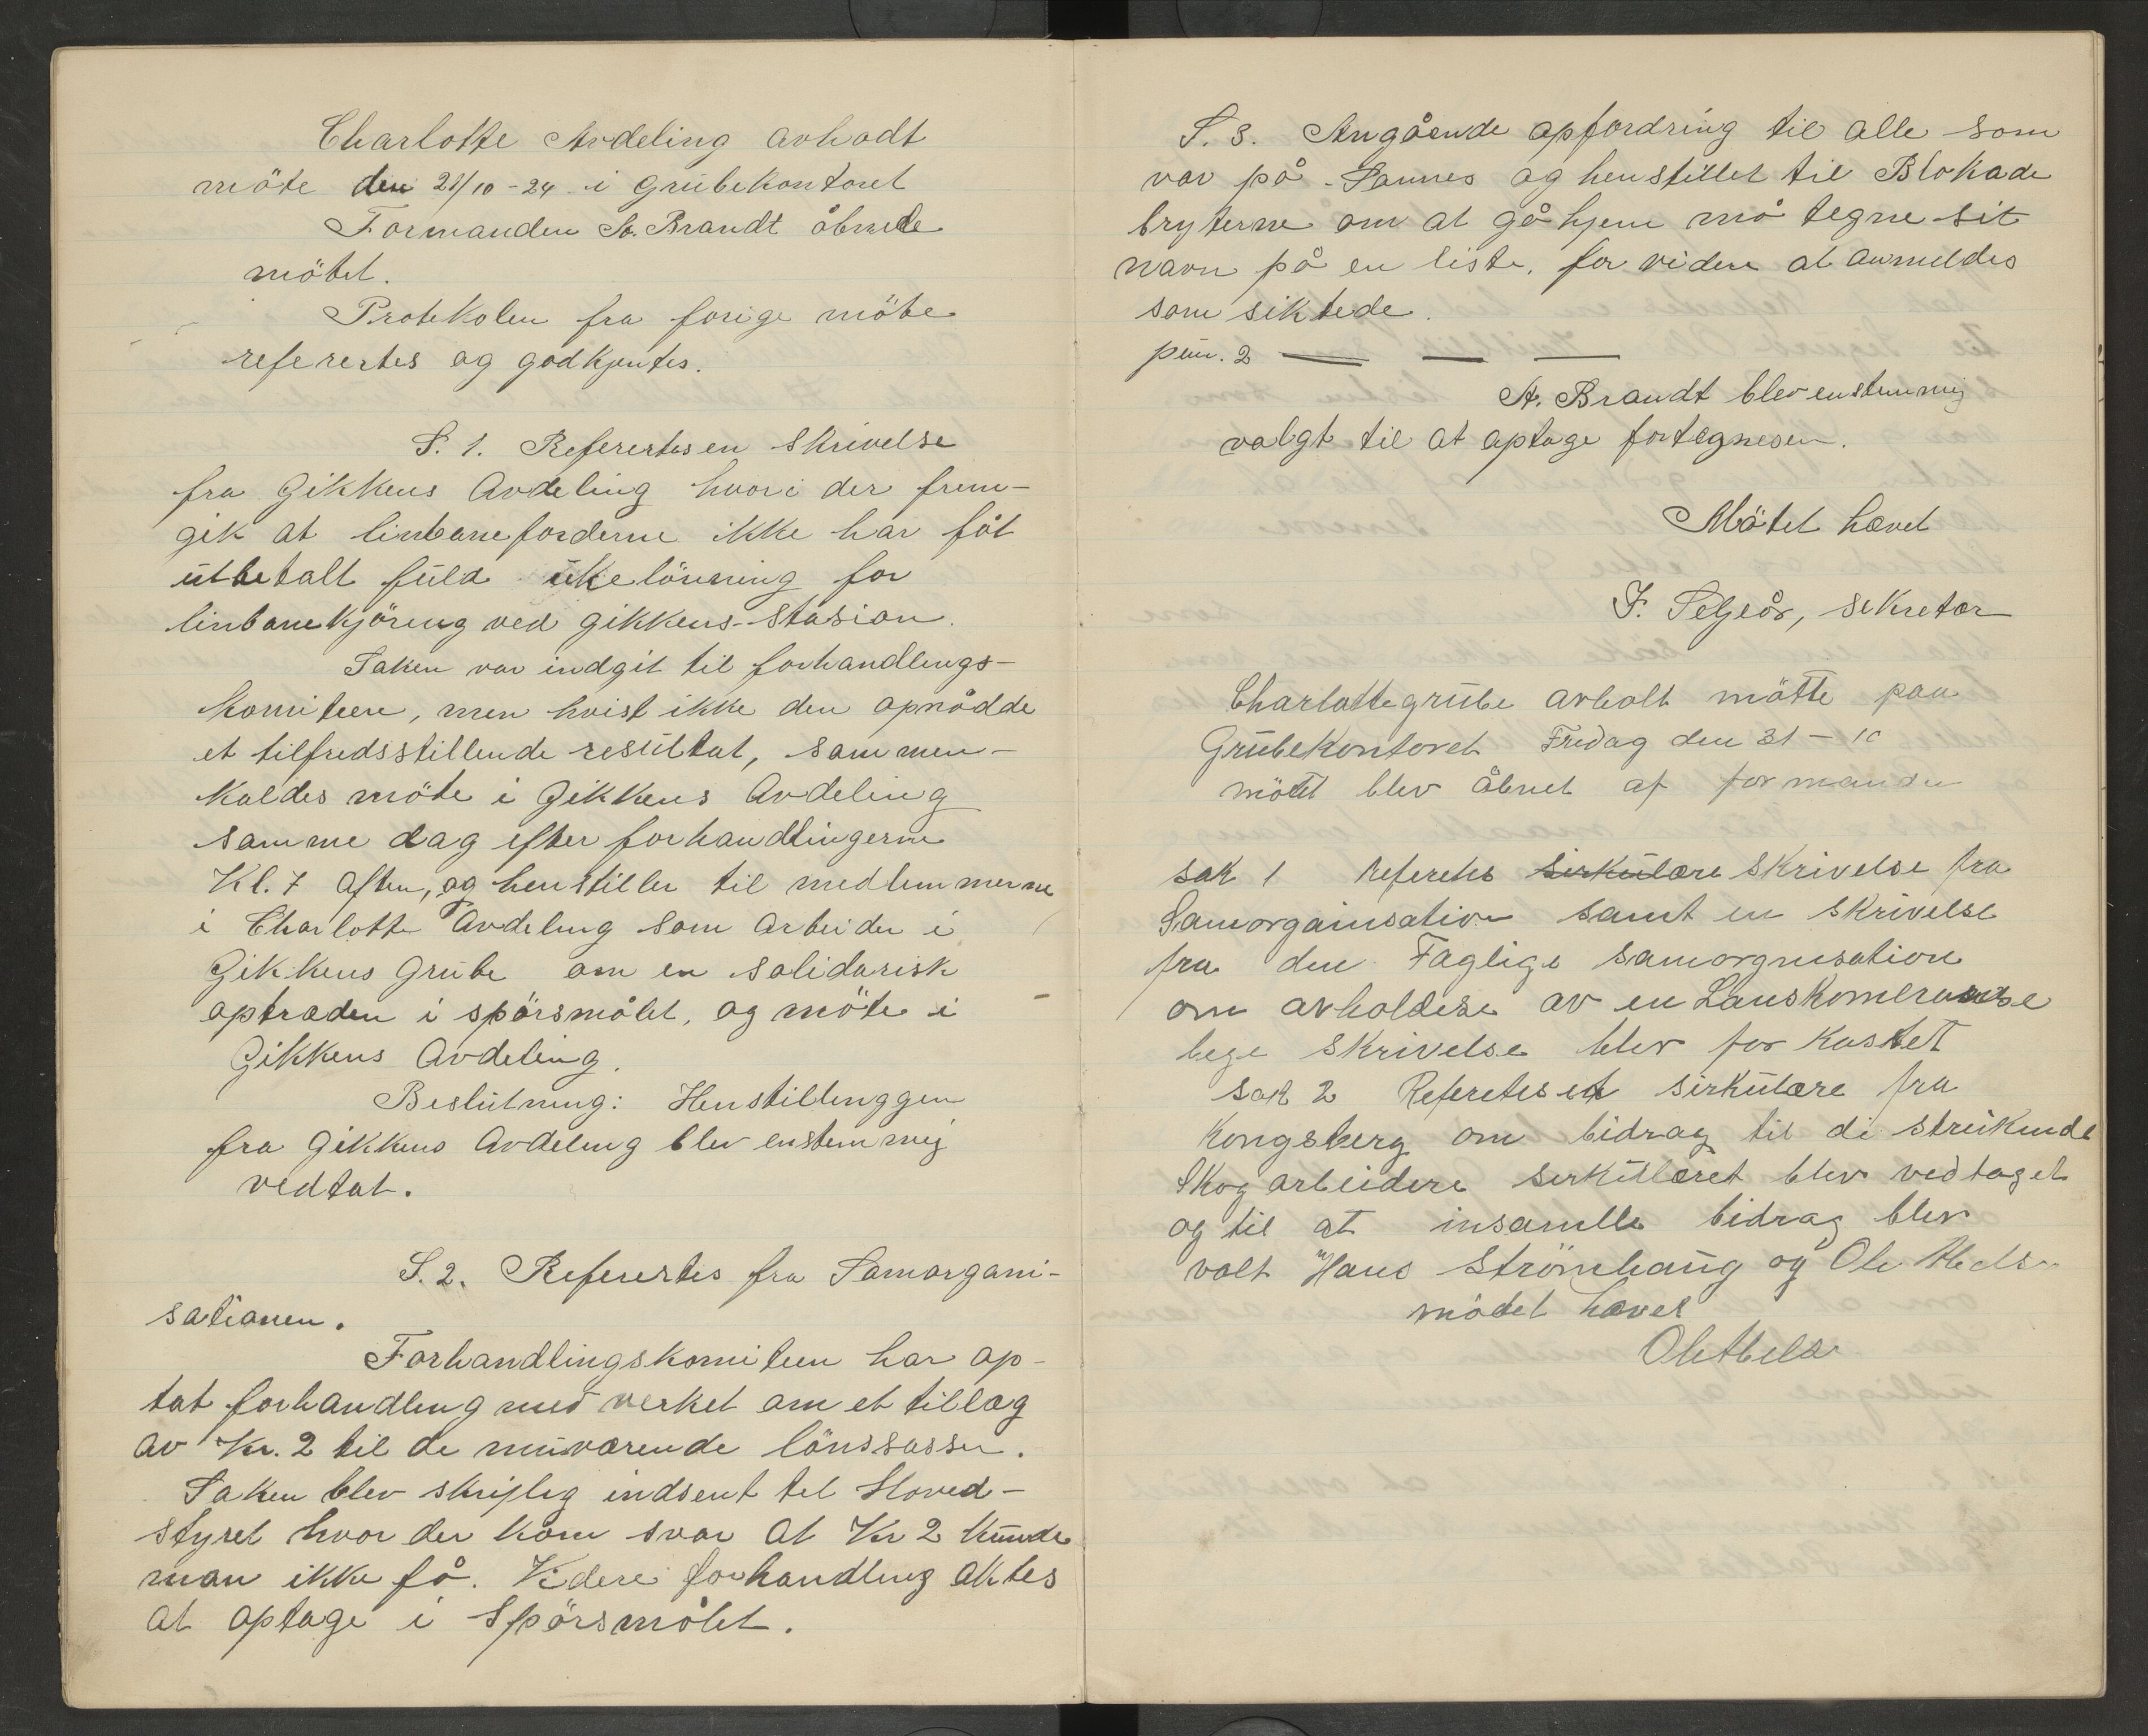 Charlotte Avdeling avhodt
möte den 21/10-24 i Grubekontoret
Formanden A. Brandt åbnede
mötet.
Protokolen fra forige möte
referertes og godkjentes.
S. 1. Referertes en skrivelse
fra Gikkens Avdeling hvori der frem-
gik at linbaneforderne ikke har fåt
utbetalt fuld ukelönning for
linbanekjöring ved Gikkens-Stasion.
Saken var indgit til forhandlings-
komiteen, men hvist ikke den opnådde
et tilfredsstillende resultat, sammen-
kaldes möte i Gikkens Avdeling
samme dag efter forhandlingerne
Kl. 7 aften, og henstiller til medlemmerne
i Charlotte Avdeling som arbeider i
Gikkens Grube om en solidarisk
optræden i spörsmålet, og möte i
Gikkens Avdeling.
Beslutning: Henstillinggen
fra Gikkens Avdeling blev enstemmig
vedtat.
S. 2. Referertes fra Samorgani-
sationen.
Forhandlingskomiteen har op-
tat forhandling med verket om et tillæg
av Kr. 2 til de nuværende lönssasser.
Saken blev skriflig indsent til Hoved-
styret hvor der kom svar at Kr 2 kunde
man ikke få. Videre forhandling aktes
at optage i Spörsmålet.
S. 3. Angående opfordring til alle som
var på Sannes og henstillet til Blokade
bryterne om at gå hjem må tegne sit
navn på en liste, for videre at anmeldes
som siktede.
pun. 2 — — —
A. Brandt blev enstemmig
valgt til at optage fortegnesen.
Mötet hævet
F. Seljeås, sekretær
Charlottegrube avholt mötte paa
Grubekontoret Fredag den 31-10
mötet blev åbnet af formanden
sak 1 Referetes sirkulære skrivelse fra
Samorgainsation samt en skrivelse
fra den Faglige samorgnisation
om avholdese av en
bege skrivelse blev forkastet
sak 2 Referetes et sirkulære fra
Kongsberg om bidrag til di streikende
Skogarbeidere serkulæret blev vedtaget
og til at insamlle bidrag blev
valt Hans Strömhaug og Ole
mödet hævet
Ole